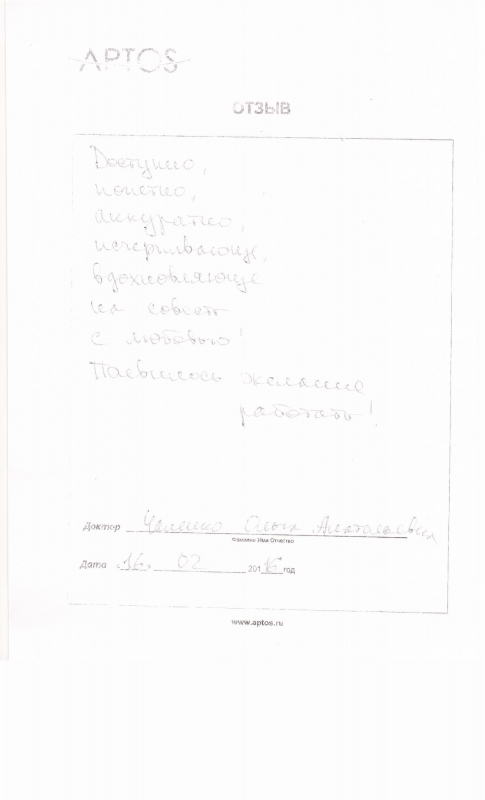 APTOS
ОТЗЫВ
Доступно,
понятно,
аккуратно,
исчерпывающе,
вдохновляюще
на совесть
с любовью!
Появилось желание
работать!
Доктор Ольга
Фамилия Имя Отчество
Дата 16. 02 2016 год
www.aptos.ru